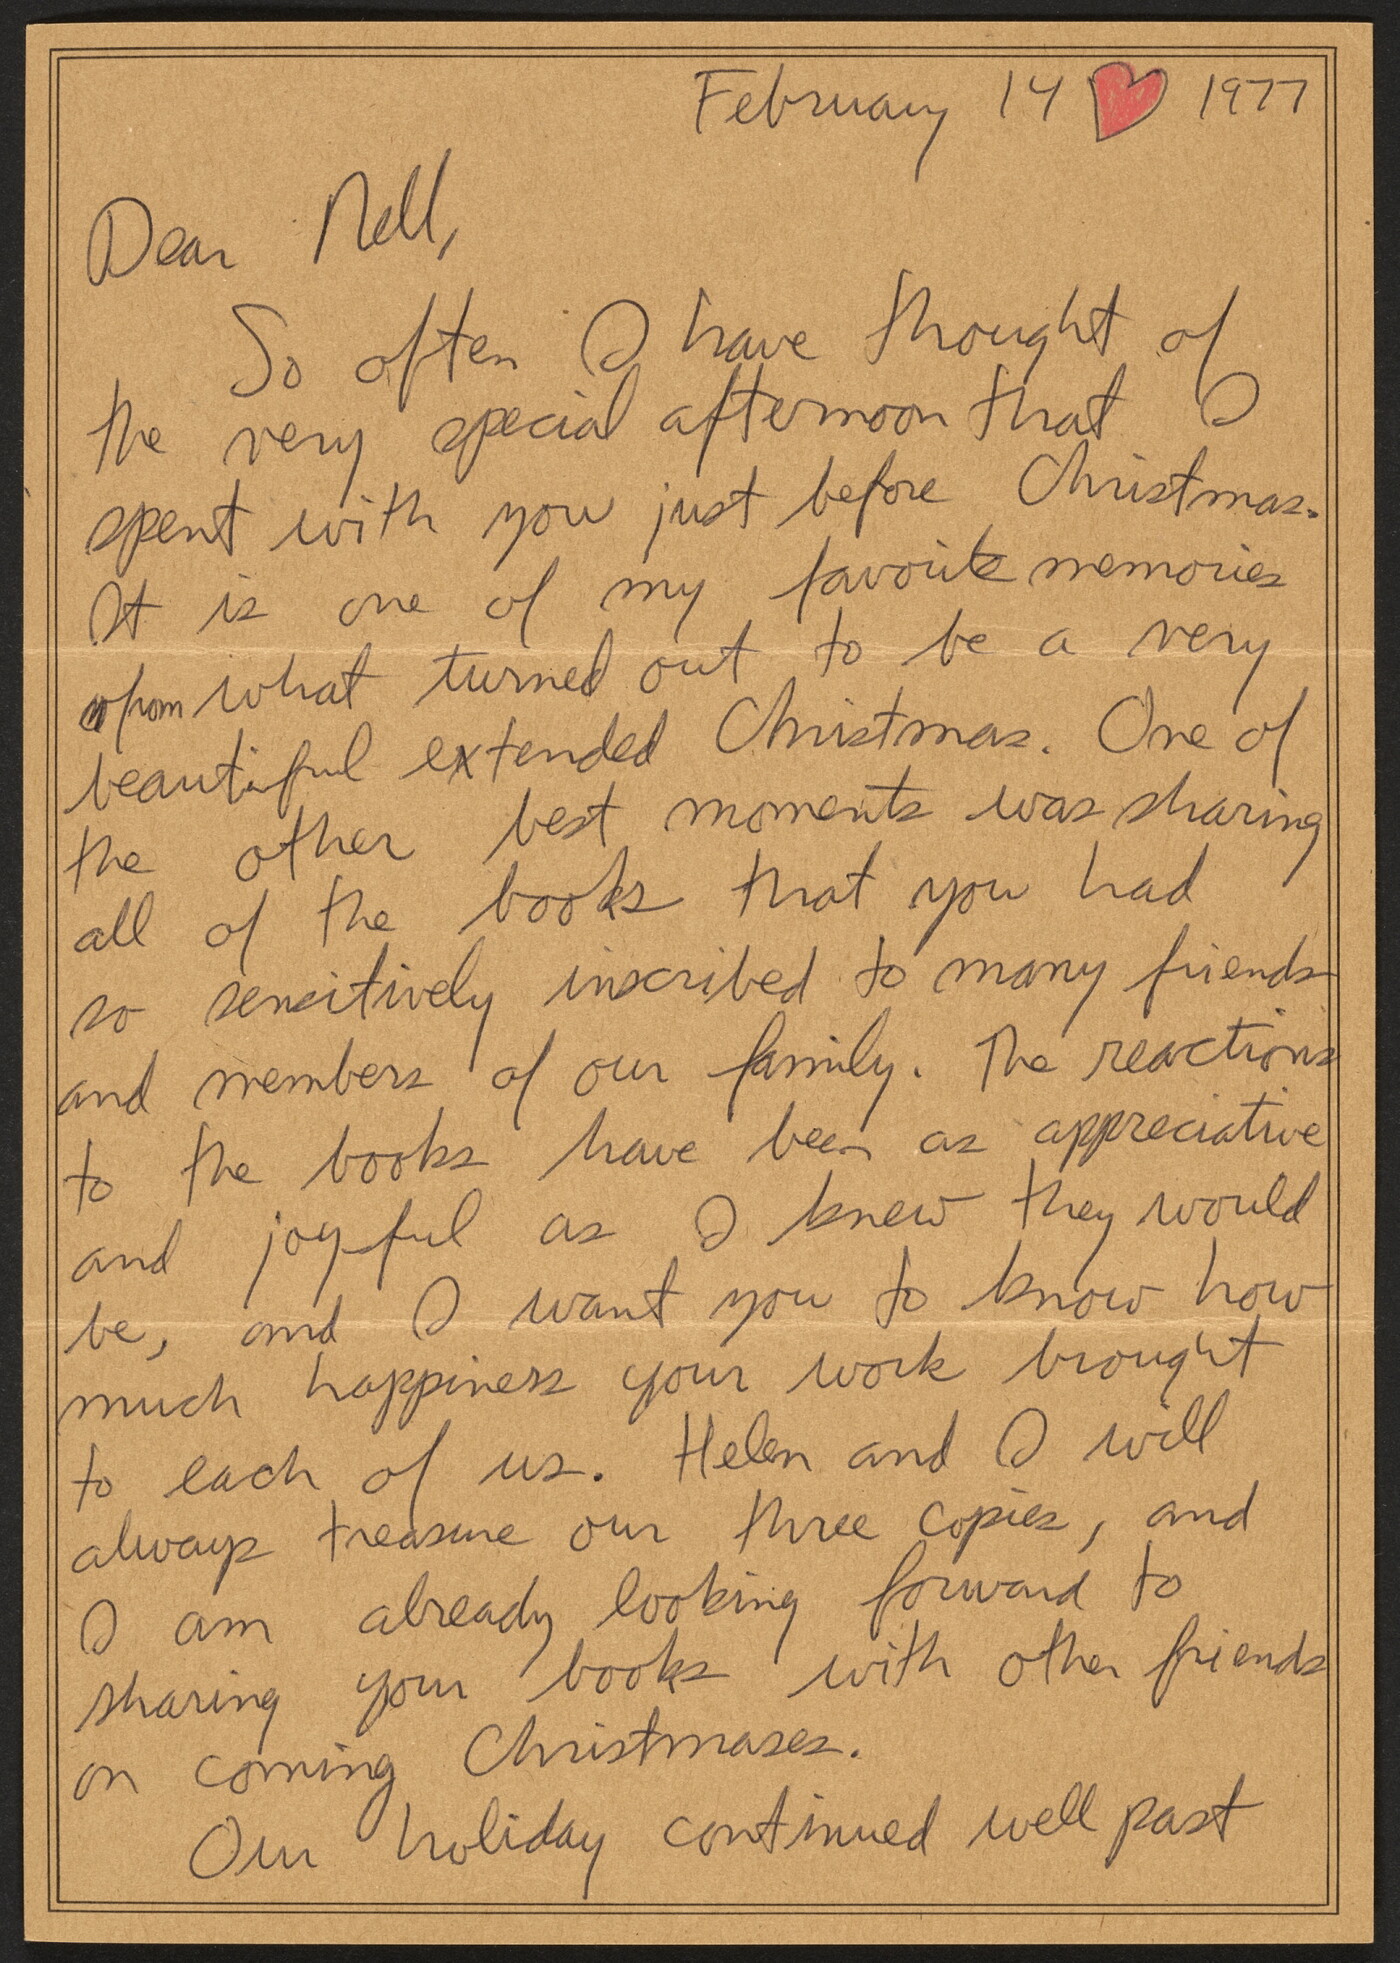 February 14 1977
Dear Nell,
So often I have thought of
the very special afternoon that I
spent with you just before Christmas.
It is one of my favorite memories
from what turned out to be a very
beautiful extended Christmas. One of
the other best moments was sharing
all of the books that you had
so sensitively inscribed to many friends
and members of our family. The reactions
to the books have been as appreciative
and joyful as I knew they would
be, and I want you to know how
much happiness your work brought
to each of us. Helen and I will
always treasure our three copies, and
I am already looking forward to
sharing your books with other friends
on coming Christmases.
Our holiday continued well past